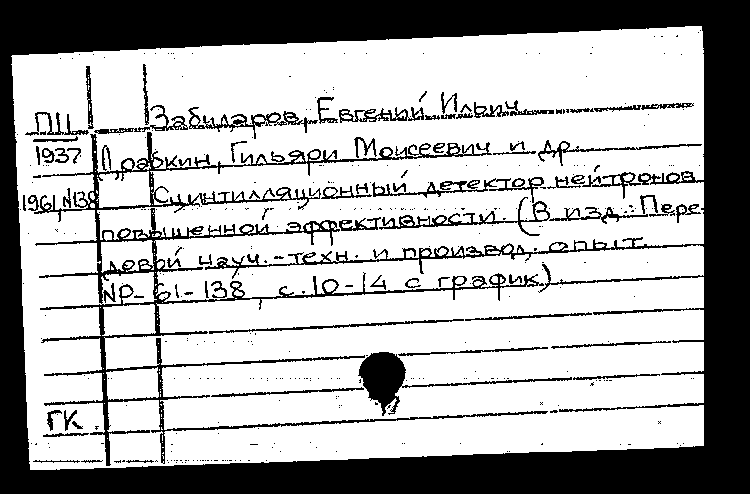 ПЦ
1937
1961, N138
Забидаров, Евгений Ильич
Драбкин, Гильяри Моисеевич и др.
Сцинтилляционный детектор нейтронов
повышенной эффективности. (В изд.: Пере-
довой науч.-техн. и производ. опыт.
NР-61-138, с.10-14 с график).
ГК.